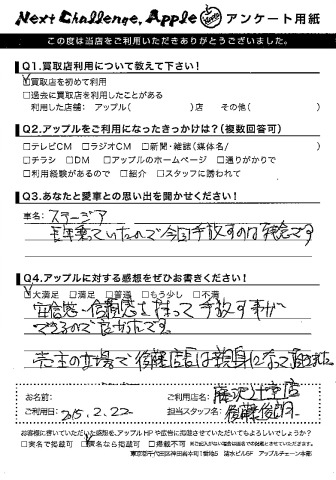 Next Challenge, Apple アンケート用紙
この度は当店をご利用いただきありがとうございました。
Q1.買取店利用について教えて下さい!
☑買取店を初めて利用
□過去に買取店を利用したことがある
利用した店舗: アップル( )店 その他( )
Q2.アップルをご利用になったきっかけは?(複数回答可)
□テレビCM □ラジオCM □新聞・雑誌(媒体名/ )
□チラシ □DM □アップルのホームページ □通りがかりで
□利用経験があるので □紹介 □スタッフに誘われて
Q3.あなたと愛車との思い出を聞かせください!
車名: ステージア
長年乗っていたので今回手放すのは残念です
Q4.アップルに対する感想をぜひお書きください!
☑大満足 □満足 □普通 □もう少し □不満
安信感・信頼感を持って手放す事が
できるので良かったです。
売主の立場で後離店長は親身になって
お名前: ご利用店名:
ご利用日: 2015.2.22 担当スタッフ名:
お客様に書いていただいた感想を、アップルHPや広告に掲載させていただいてもよろしいでしょうか?
□実名で掲載可 ☑匿名なら掲載可 □掲載不可
東京都千代田区神田岩本町1番地5 清水ビル5F アップルチェーン本部